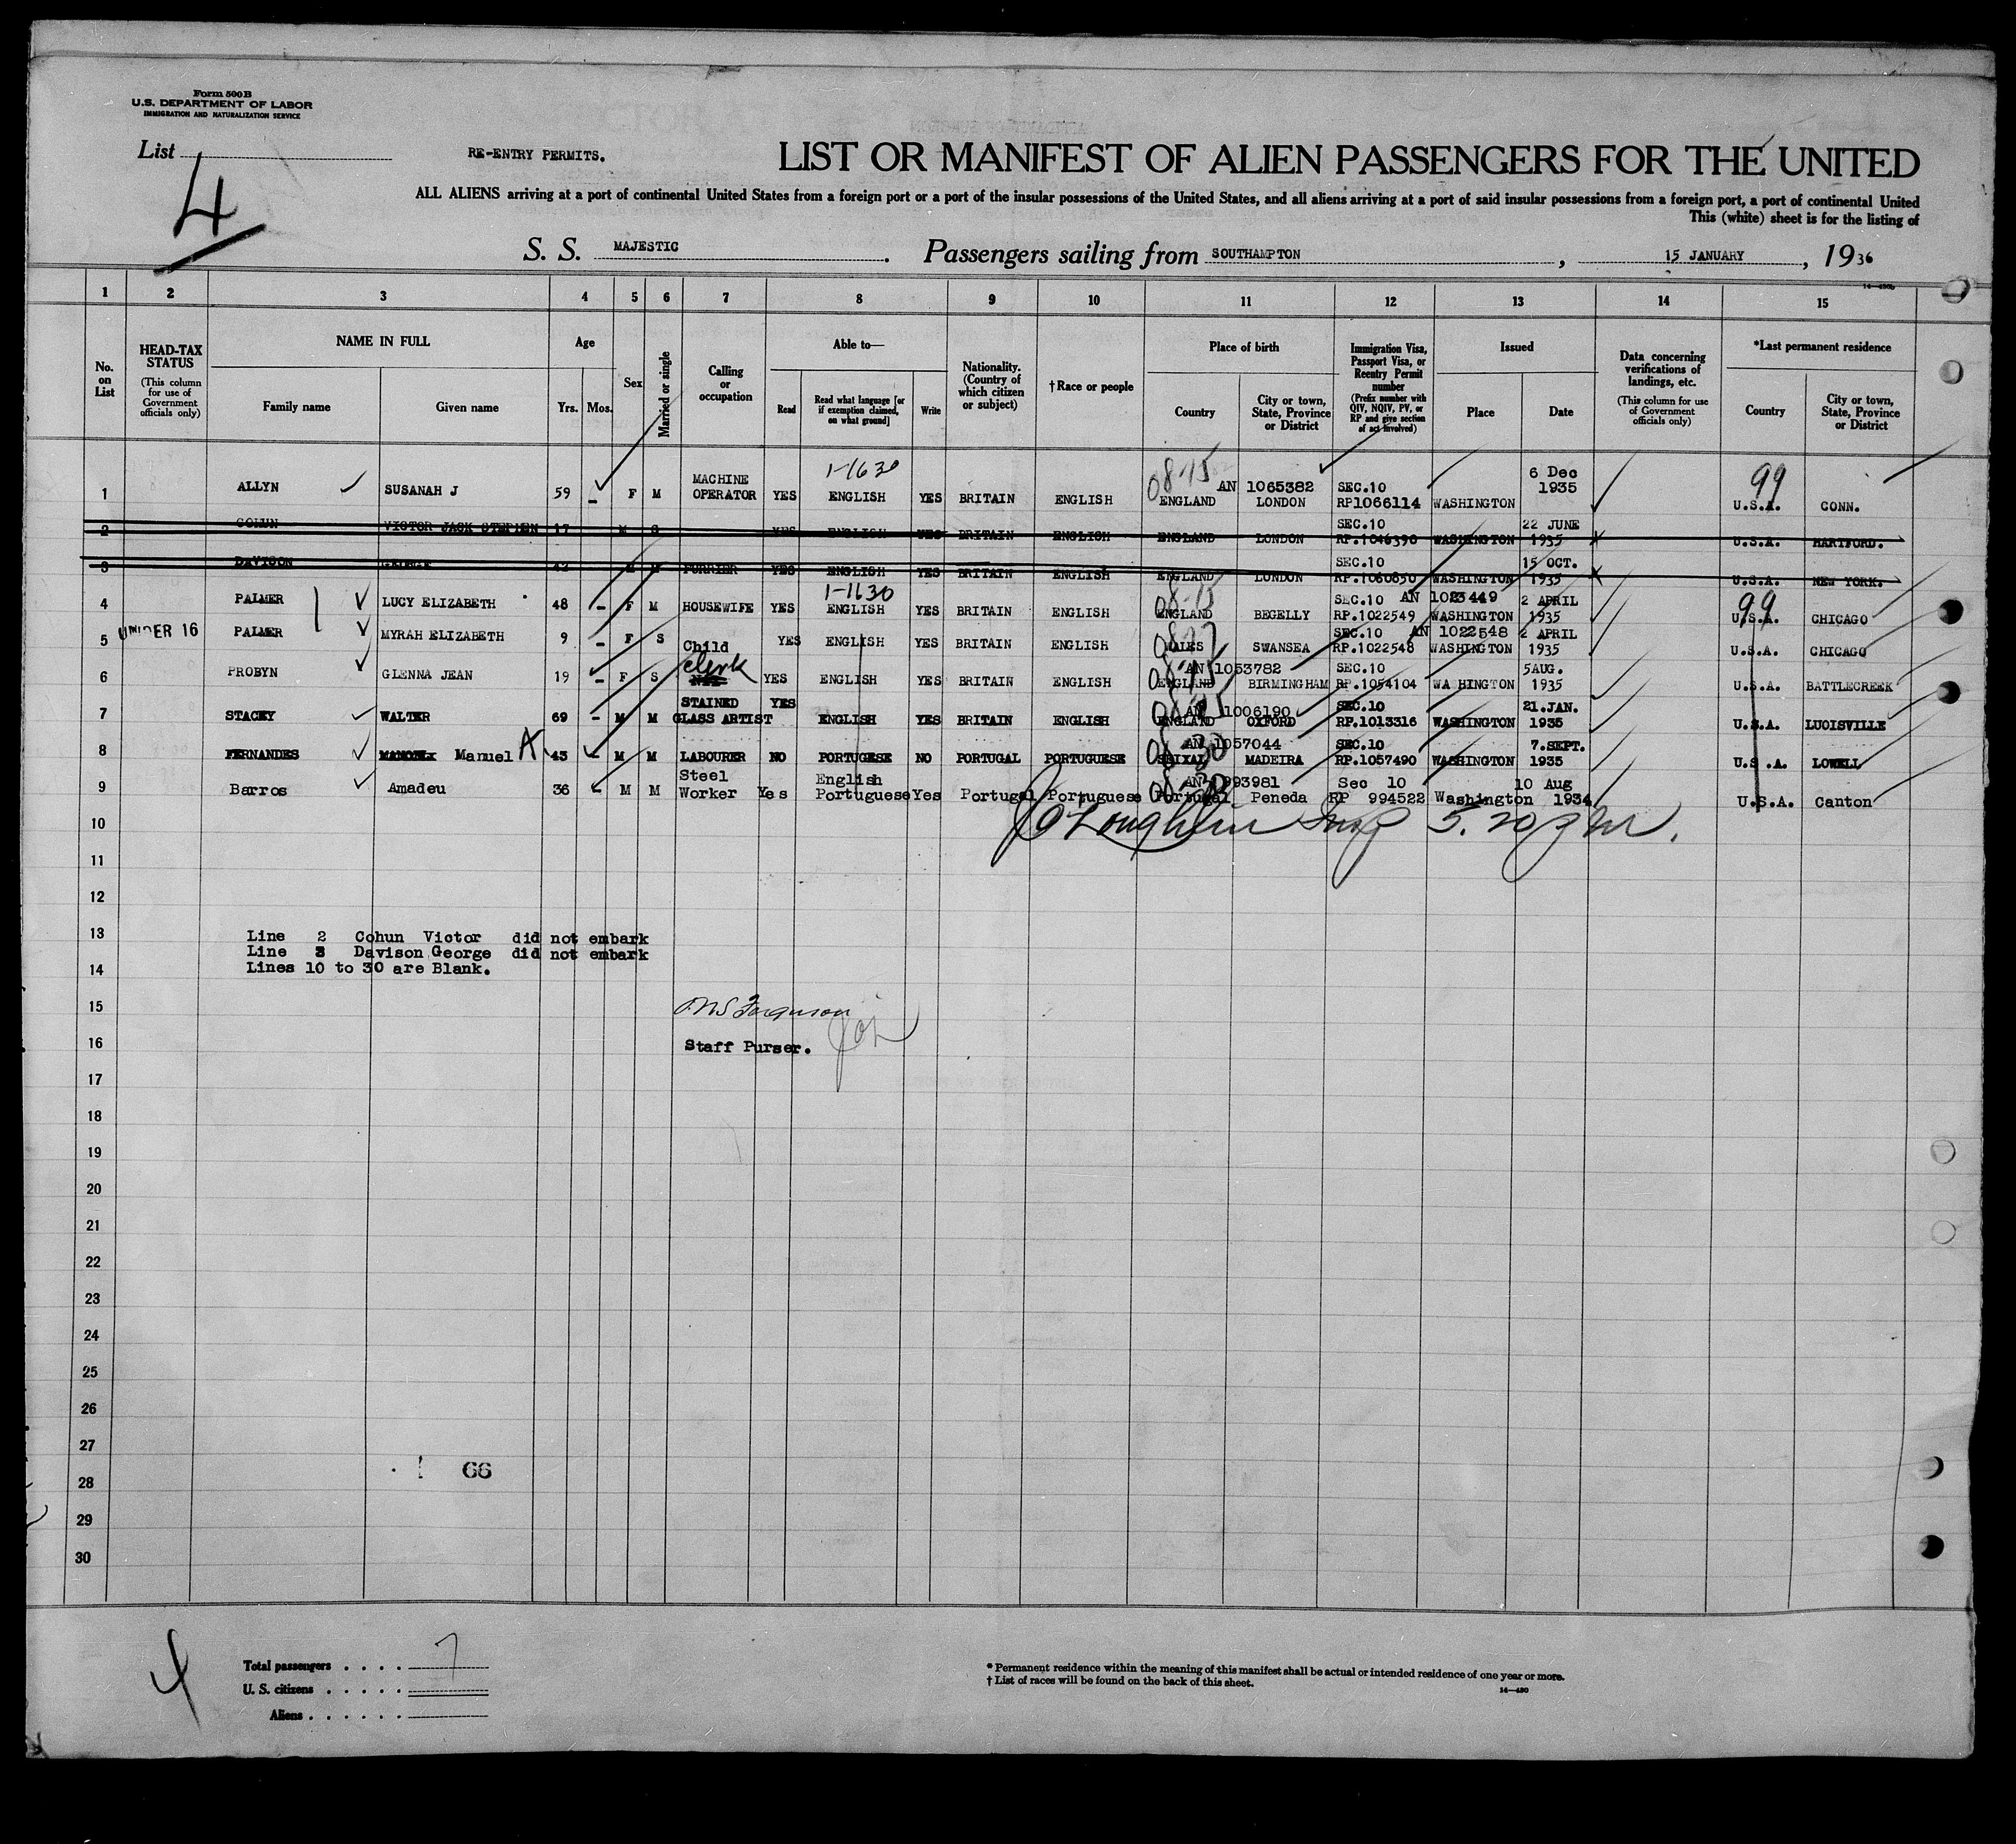 Form 500B
U.S. DEPARTMENT OF LABOR
IMMIGRATION AND NATURALIZATION SERVICE
List
4
RE-ENTRY PERMITS.
LIST OR MANIFEST OF ALIEN PASSENGERS FOR THE UNITED
ALL ALIENS arriving at a port of continental United States from a foreign port or a port of the insular possessions of the United States, and all aliens arriving at a port of said insular possessions from a foreign port, a port of continental United
This (white) sheet is for the listing of
S. S. MAJESTIC. Passengers sailing from SOUTHAMPTON, 15 JANUARY, 1936
1 2 3 4 5 6 7 8 9 10 11 12 13 14 15
No. on List
HEAD-TAX STATUS (This column for use of Government officials only)
NAME IN FULL
Family name Given name
Age
Yrs. Mos.
Sex
Married or single
Calling or occupation
Able to—
Read Read what language [or if exemption claimed, on what ground] Write
Nationality. (Country of which citizen or subject)
†Race or people
Place of birth
Country City or town, State, Province or District
Immigration Visa, Passport Visa, or Reentry Permit number (Prefix number with QIV, NQIV, PV, or RP and give section of act involved)
Issued
Place Date
Data concerning verifications of landings, etc. (This column for use of Government officials only)
*Last permanent residence
Country City or town, State, Province or District
1-1630 08-15 99
1 ALLYN SUSANAH J 59 - F M MACHINE OPERATOR YES ENGLISH YES BRITAIN ENGLISH ENGLAND AN 1065382 LONDON SEC.10 RP1066114 WASHINGTON 6 Dec 1935 U.S.A. CONN.
2 COHUN VICTOR JACK STEPHEN 17 M S YES ENGLISH YES BRITAIN ENGLISH ENGLAND LONDON SEC.10 RP.1046390 WASHINGTON 22 JUNE 1935 U.S.A. HARTFORD.
3 DAVISON GEORGE 42 M M FURRIER YES ENGLISH YES BRITAIN ENGLISH ENGLAND LONDON SEC.10 RP.1060850 WASHINGTON 15 OCT. 1935 U.S.A. NEW YORK.
1-1630 08-15 99
4 PALMER LUCY ELIZABETH 48 - F M HOUSEWIFE YES ENGLISH YES BRITAIN ENGLISH ENGLAND BEGELLY SEC.10 AN 1023449 RP.1022549 WASHINGTON 2 APRIL 1935 U.S.A. CHICAGO
5 UNDER 16 PALMER MYRAH ELIZABETH 9 - F S Child YES ENGLISH YES BRITAIN ENGLISH WALES SWANSEA SEC.10 AN 1022548 RP.1022548 WASHINGTON 2 APRIL 1935 U.S.A. CHICAGO
6 PROBYN GLENNA JEAN 19 - F S clerk YES ENGLISH YES BRITAIN ENGLISH ENGLAND AN 1053782 BIRMINGHAM SEC.10 RP.1054104 WA HINGTON 5AUG. 1935 U.S.A. BATTLECREEK
7 STACEY WALTER 69 - M M STAINED GLASS ARTIST YES ENGLISH YES BRITAIN ENGLISH ENGLAND AN 1006190 OXFORD SEC.10 RP.1013316 WASHINGTON 21.JAN. 1935 U.S.A. LUOISVILLE
8 FERNANDES Manuel 43 - M M LABOURER NO PORTUGESE NO PORTUGAL PORTUGUESE SEIXAL AN 1057044 MADEIRA SEC.10 RP.1057490 WASHINGTON 7.SEPT. 1935 U.S.A. LOWELL
9 Barros Amadeu 36 - M M Steel Worker Yes English Portuguese Yes Portugal Portuguese Portugal AN 993981 Peneda Sec 10 RP 994522 Washington 10 Aug 1934 U.S.A. Canton
10 J O'Loughlin Insp 5.20 pm.
11
12
13
Line 2 Cohun Victor did not embark
Line 3 Davison George did not embark
14
Lines 10 to 30 are Blank.
15
Ferguson
16
Staff Purser. JOL
17
18
19
20
21
22
23
24
25
26
27
66
28
29
30
4
Total passengers . . . . 7
U. S. citizens . . . . .
Aliens . . . . . .
* Permanent residence within the meaning of this manifest shall be actual or intended residence of one year or more.
† List of races will be found on the back of this sheet.
14—430